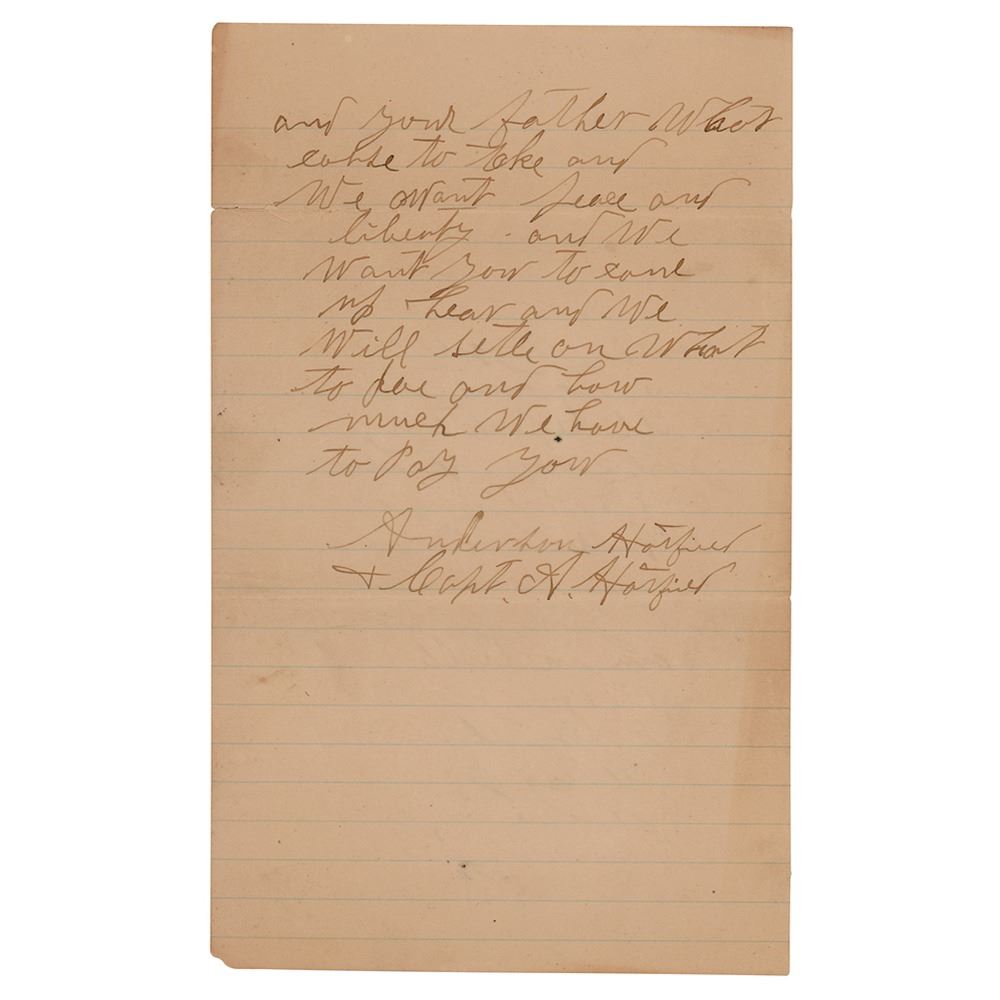 and your father What
corse to tke and
We want peace and
liberty - and We
Want you to come
up hear and We
Will setle on What
to doe and how
much We have
to Pay you
Anderson Hatfield
+ Capt. A. Hatfield